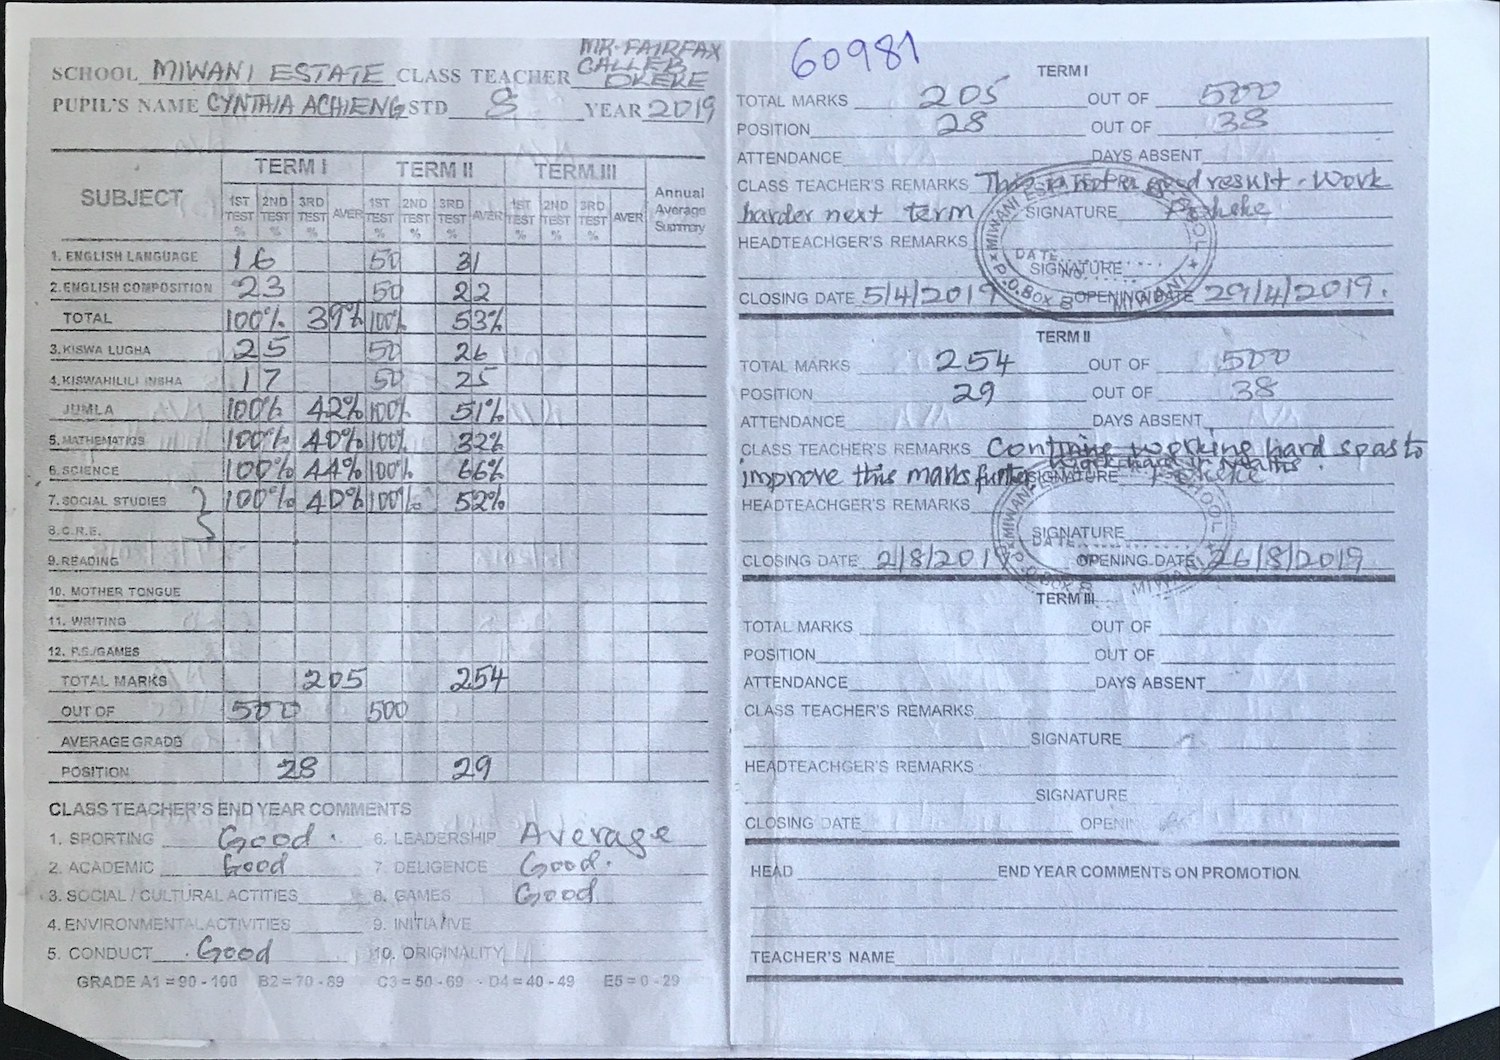 60981
SCHOOL MIWANI ESTATE CLASS TEACHER MR. FAIRFAX CALLEB OKEKE
PUPIL'S NAME CYNTHIA ACHIENG STD 8 YEAR 2019
SUBJECT TERM I TERM II TERM III Annual Average Summary
1ST TEST % 2ND TEST % 3RD TEST % AVER 1ST TEST % 2ND TEST % 3RD TEST % AVER 1ST TEST % 2ND TEST % 3RD TEST % AVER
1. ENGLISH LANGUAGE 16 50 31
2. ENGLISH COMPOSITION 23 50 22
TOTAL 100% 39% 100% 53%
3. KISWA LUGHA 25 50 26
4. KISWAHILILI INSHA 17 50 25
JUMLA 100% 42% 100% 51%
5. MATHEMATICS 100% 40% 100% 32%
6. SCIENCE 100% 44% 100% 66%
7. SOCIAL STUDIES 100% 40% 100% 52%
8. C.R.E.
9. READING
10. MOTHER TONGUE
11. WRITING
12. P.S./GAMES
TOTAL MARKS 205 254
OUT OF 500 500
AVERAGE GRADE
POSITION 28 29
CLASS TEACHER'S END YEAR COMMENTS
1. SPORTING Good. 6. LEADERSHIP Average
2. ACADEMIC Good 7. DELIGENCE Good.
3. SOCIAL / CULTURAL ACTITIES 8. GAMES Good
4. ENVIRONMENTAL ACTIVITIES 9. INITIATIVE
5. CONDUCT Good 10. ORIGINALITY
GRADE A1 = 90 - 100 B2 = 70 - 89 C3 = 50 - 69 - D4 = 40 - 49 E5 = 0 - 29
TERM I
TOTAL MARKS 205 OUT OF 500
POSITION 28 OUT OF 38
ATTENDANCE DAYS ABSENT
CLASS TEACHER'S REMARKS This is not a good result. Work
harder next term SIGNATURE Fokeke
HEADTEACHGER'S REMARKS
DATE
SIGNATURE
CLOSING DATE 5/4/2019 OPENING DATE 29/4/2019.
MIWANI P.O. BOX MIWANI
TERM II
TOTAL MARKS 254 OUT OF 500
POSITION 29 OUT OF 38
ATTENDANCE DAYS ABSENT
CLASS TEACHER'S REMARKS Continue working hard so as to
improve this marks further. Work hard in maths.
SIGNATURE
HEADTEACHGER'S REMARKS
SIGNATURE
DATE
CLOSING DATE 2/8/2019 OPENING DATE 26/8/2019
MIWANI SCHOOL P.O. BOX MIWANI
TERM III
TOTAL MARKS OUT OF
POSITION OUT OF
ATTENDANCE DAYS ABSENT
CLASS TEACHER'S REMARKS
SIGNATURE
HEADTEACHGER'S REMARKS
SIGNATURE
CLOSING DATE OPENIN
HEAD END YEAR COMMENTS ON PROMOTION
TEACHER'S NAME